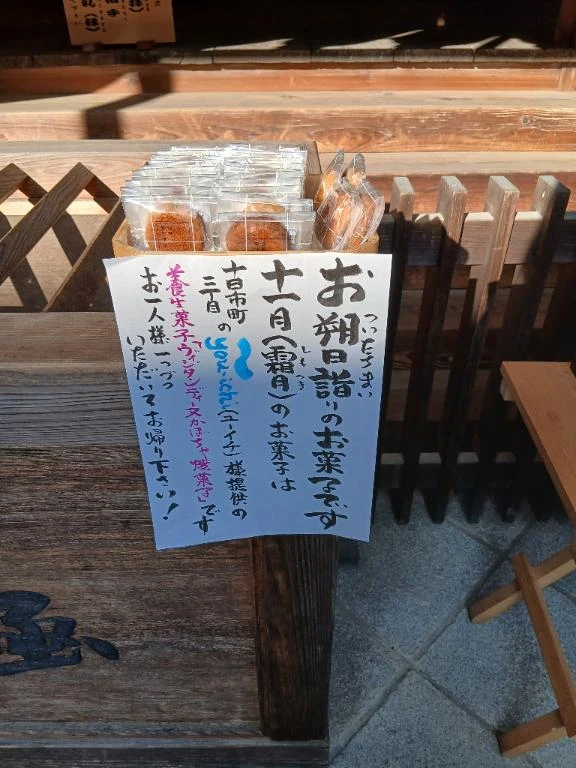 ついたちまい
お朔日詣りのお菓子です
しもつき
十一月(霜月)のお菓子は
十日市町
三丁目の you-ichi(ユーイチ)様提供の
栄養生菓子ヴィンタンディースかぼちゃ焼菓子」です
お一人様一つづつ
いただいてお帰り下さい!